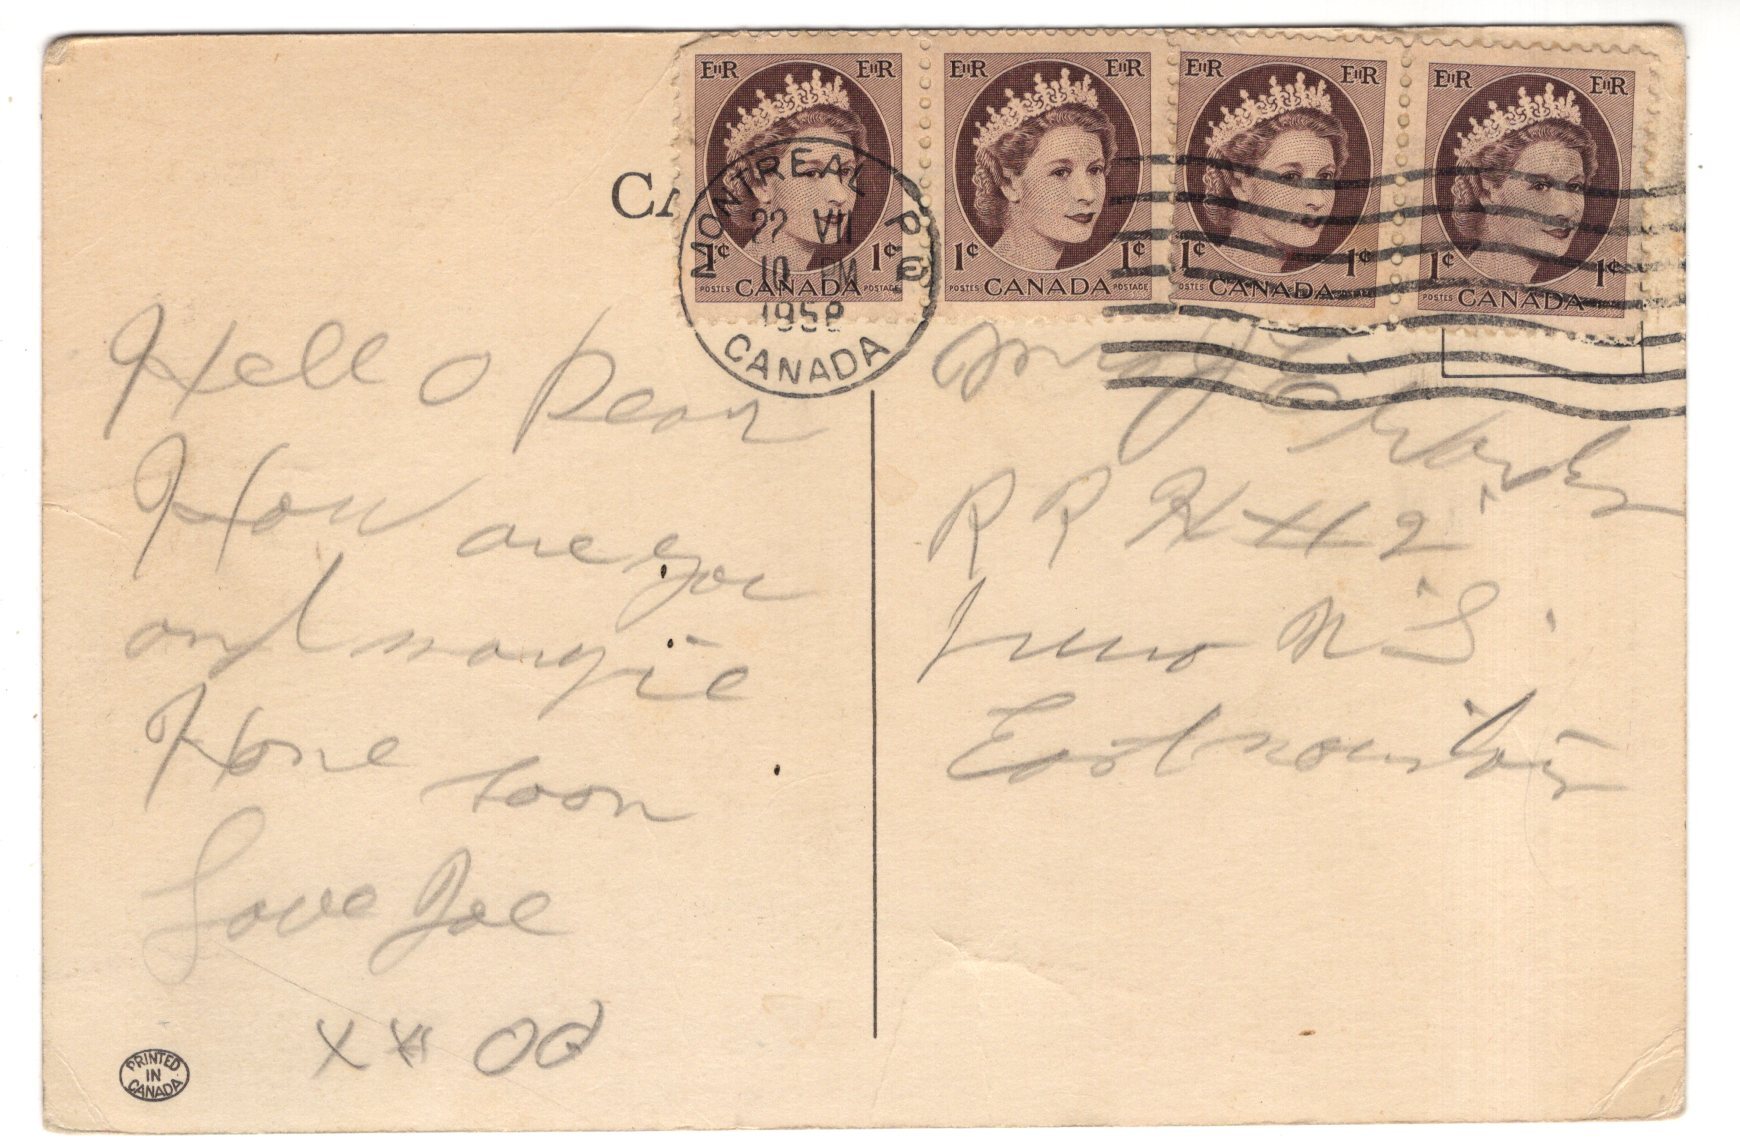 CA
EIIR EIIR
1¢ 1¢
POSTES CANADA POSTAGE
EIIR EIIR
1¢ 1¢
POSTES CANADA POSTAGE
EIIR EIIR
1¢ 1¢
POSTES CANADA
EIIR EIIR
1¢ 1¢
POSTES CANADA
MONTREAL P.Q.
22 VII
10 PM
1958
CANADA
Hello Dear
How are you
and margie
Home soon
Love Joe
XX OO
PRINTED
IN
CANADA
R R # 2
Truro N S
East mountain